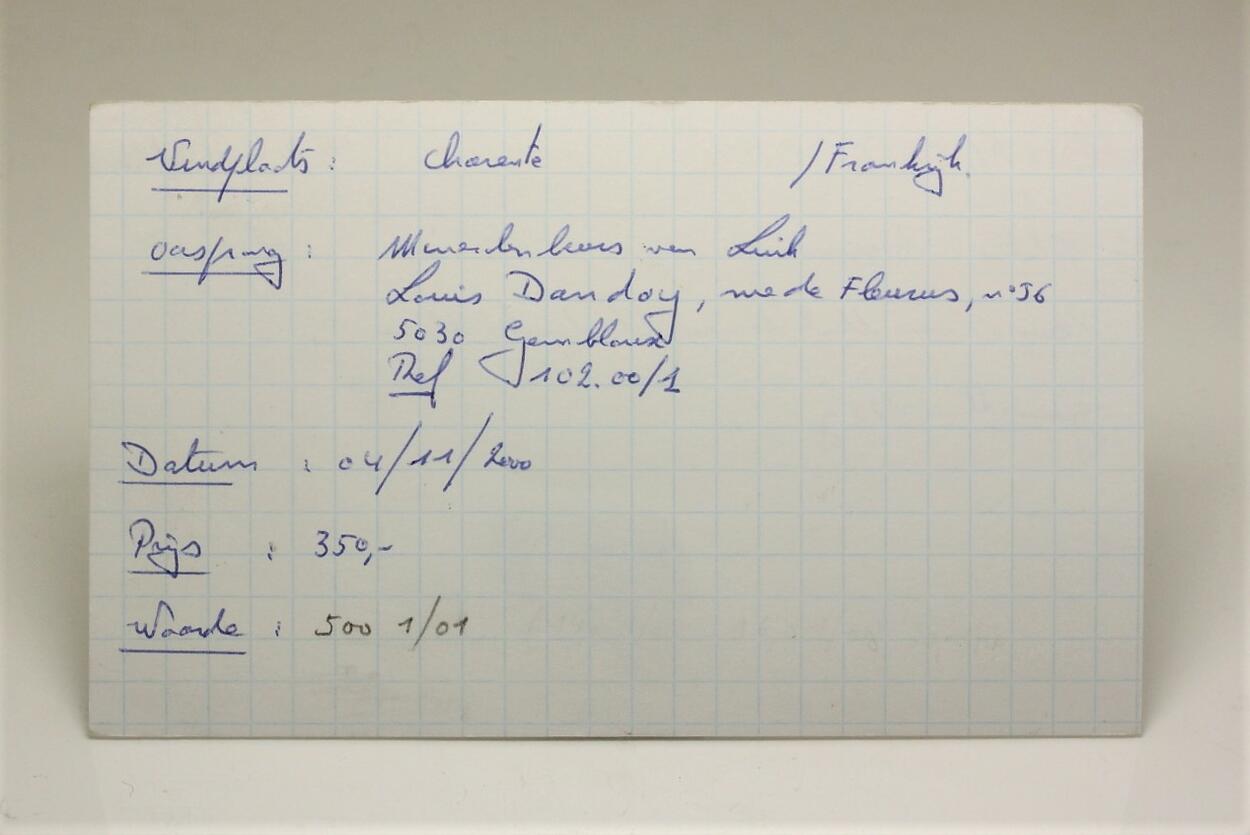 Vindplaats : Charente /Frankrijk.
oorsprong : Mineralenbeurs van Luik
Louis Dandoy, rue de Fleurus, n°56
5030 Gembloux
Ref 102.00/1
Datum : 04/11/2000
Prijs : 350,-
Waarde : 500 1/01